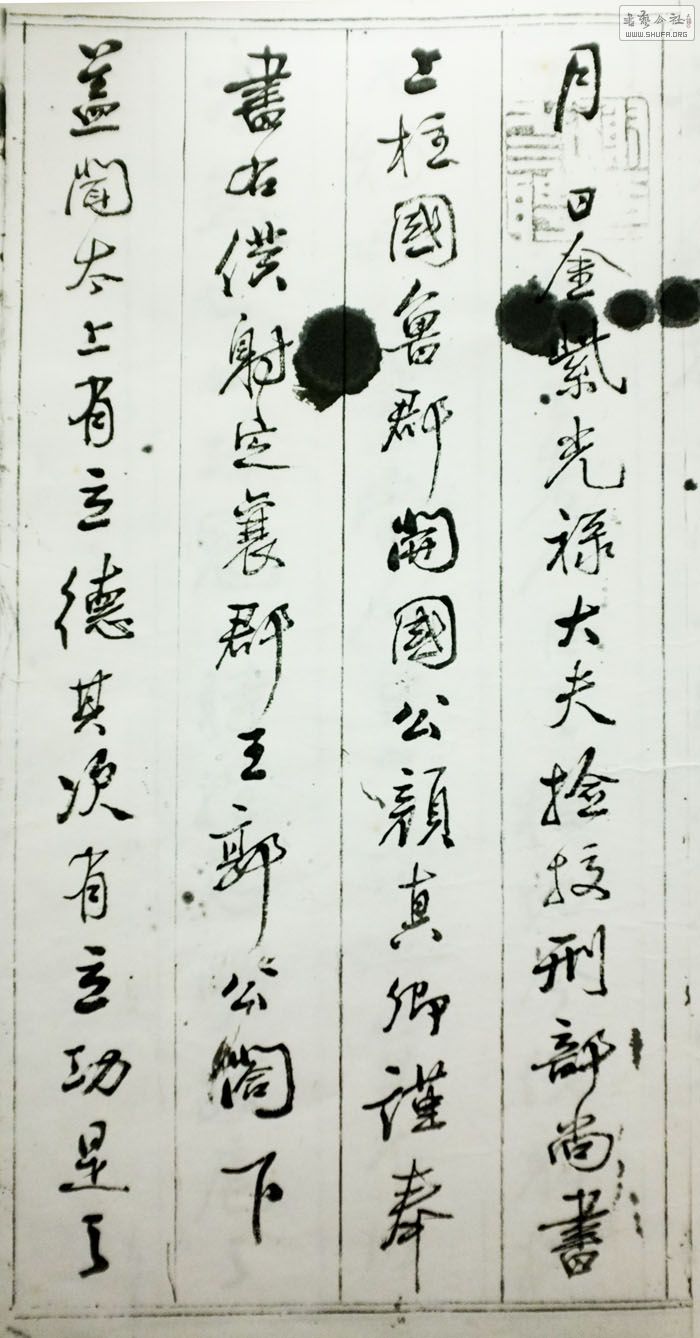 月日金紫光禄大夫撿挍刑部尚書
上柱國魯郡開國公顔真卿謹奉
書右僕射定襄郡王郭公閣下
蓋聞太上有立德其次有立功是之
書藝公社
WWW.SHUFA.ORG